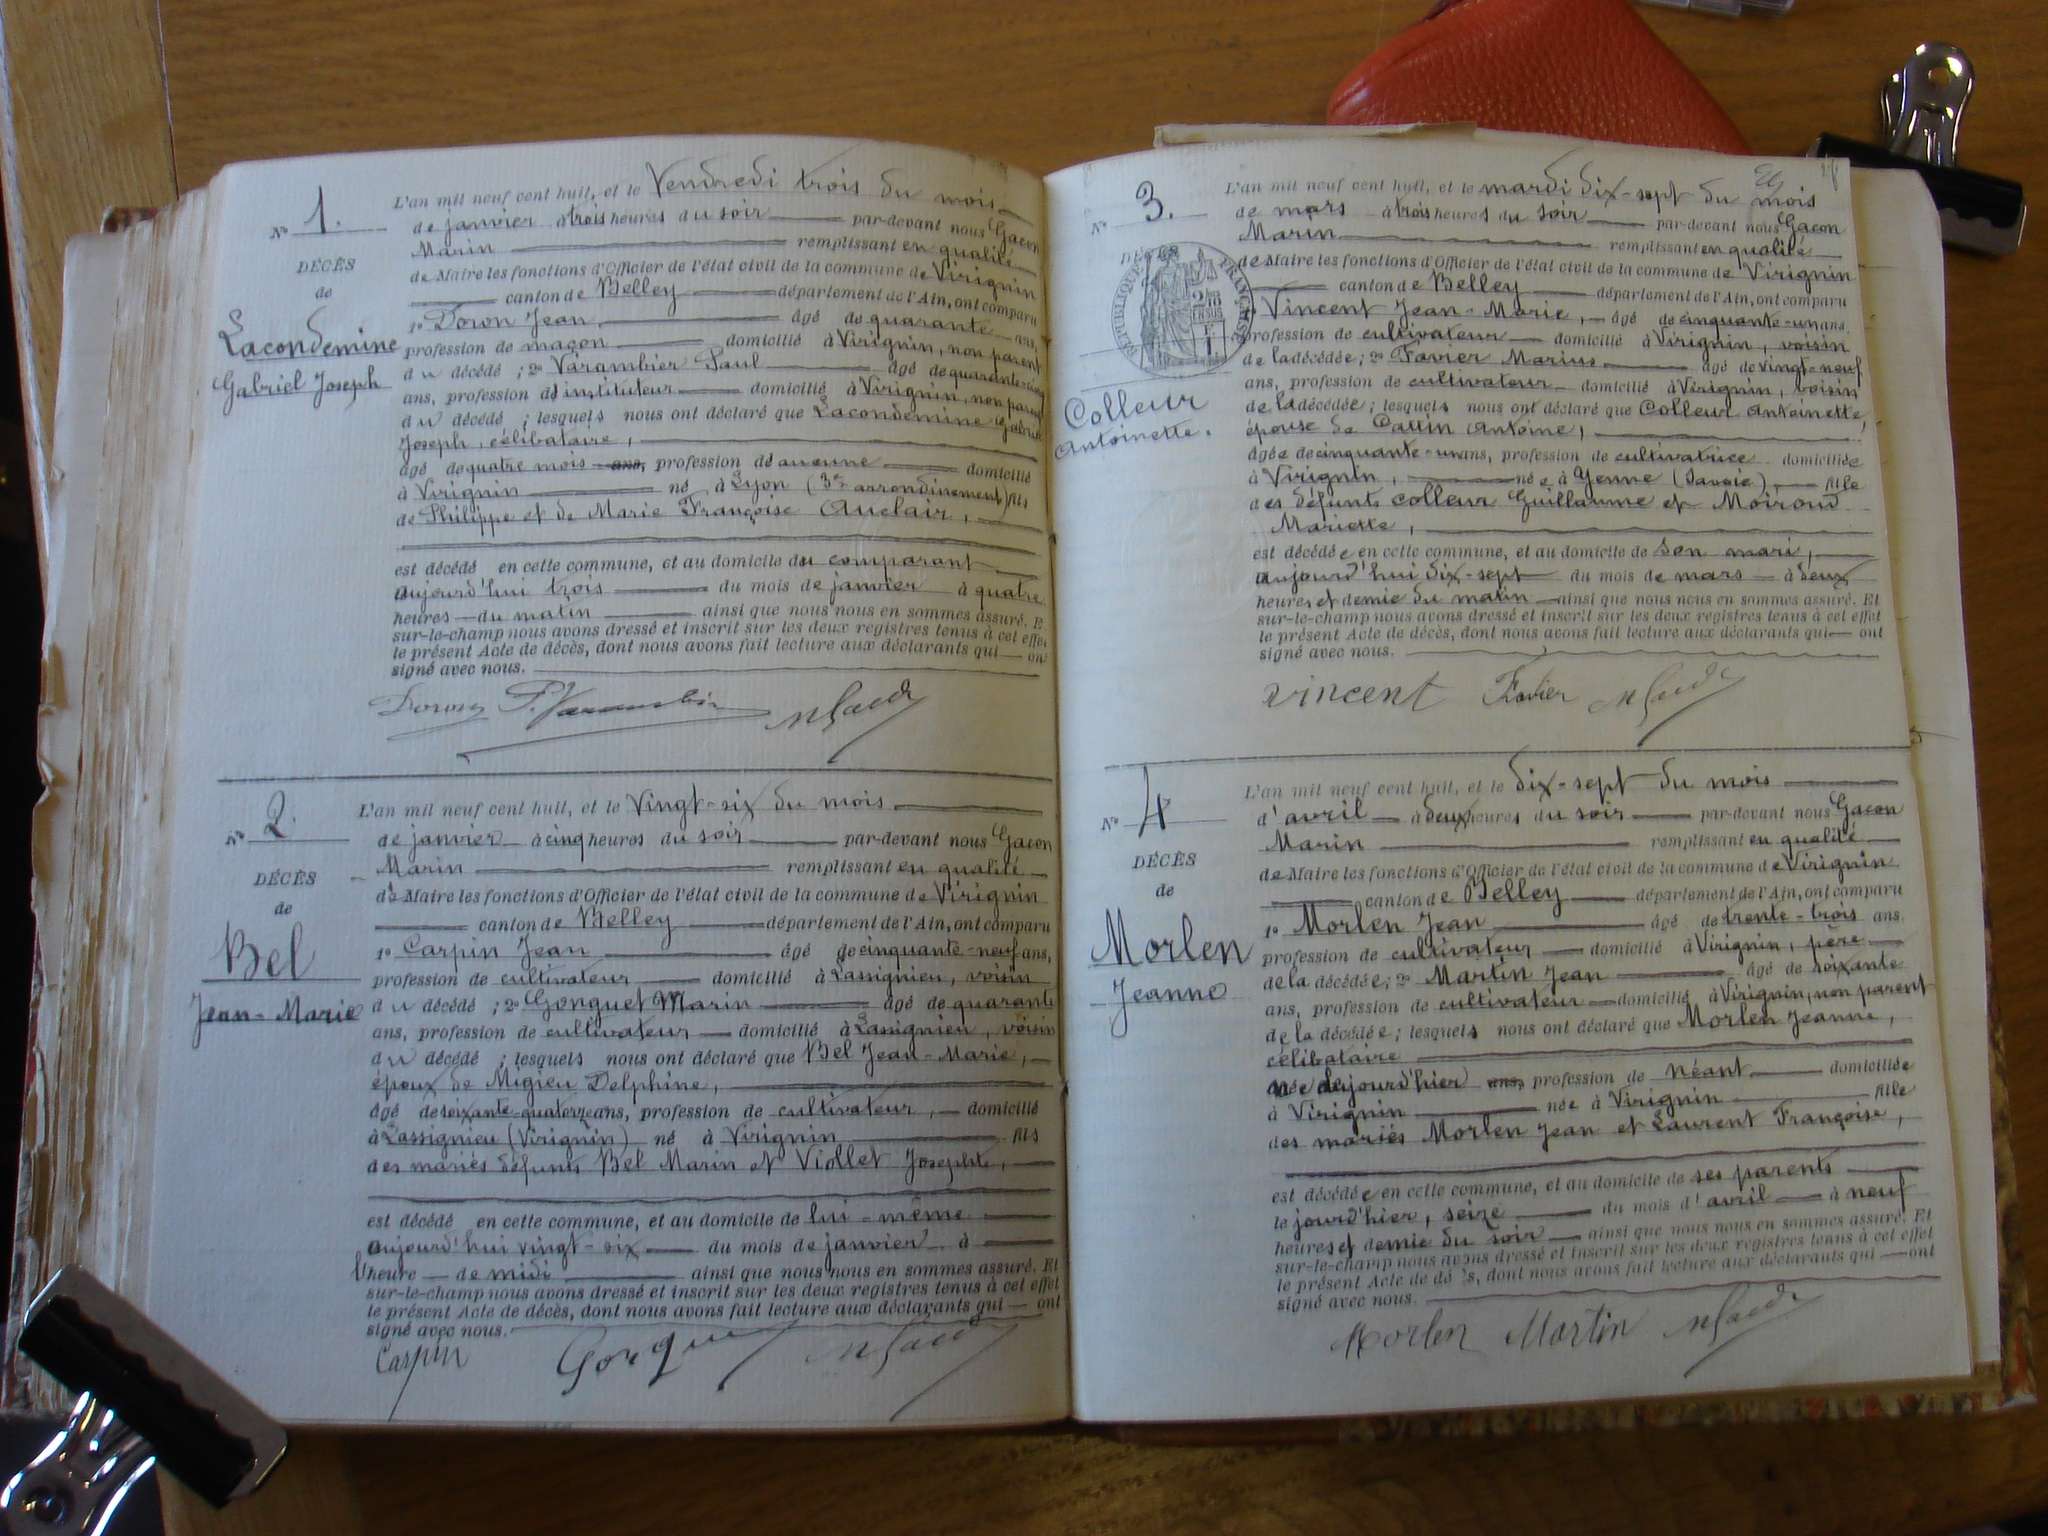 N° 1.
DÉCÈS
de
Lacondemine
Gabriel Joseph
L'an mil neuf cent huit, et le Vendredi trois du mois
de janvier à trois heures du soir par-devant nous Gacon
Marin remplissant en qualité
de Maire les fonctions d'Officier de l'état civil de la commune de Virignin
canton de Belley département de l'Ain, ont comparu
1° Doron Jean âgé de quarante ans,
profession de maçon domicilié à Virignin, non parent
du décédé ; 2° Varambier Paul âgé de quarante-cinq
ans, profession d'instituteur domicilié à Virignin, non parent
du décédé ; lesquels nous ont déclaré que Lacondemine Gabriel
Joseph, célibataire,
âgé de quatre mois ans, profession de aucune domicilié
à Virignin né à Lyon (3e arrondissement) fils
de Philippe et de Marie Françoise Auclair,
est décédé en cette commune, et au domicile du comparant
aujourd'hui trois du mois de janvier à quatre
heures du matin ainsi que nous nous en sommes assuré. Et
sur-le-champ nous avons dressé et inscrit sur les deux registres tenus à cet effet
le présent Acte de décès, dont nous avons fait lecture aux déclarants qui ont
signé avec nous.
Doron P. Varambier
N° 2.
DÉCÈS
de
Bel
Jean-Marie
L'an mil neuf cent huit, et le Vingt-six du mois
de janvier à cinq heures du soir par-devant nous Gacon
Marin remplissant en qualité
de Maire les fonctions d'Officier de l'état civil de la commune de Virignin
canton de Belley département de l'Ain, ont comparu
1° Carpin Jean âgé de cinquante-neuf ans,
profession de cultivateur domicilié à Lassignieu, voisin
du décédé ; 2° Gonguet Marin âgé de quarante
ans, profession de cultivateur domicilié à Lassignieu, voisin
du décédé ; lesquels nous ont déclaré que Bel Jean-Marie,
époux de Migieu Delphine,
âgé de soixante-quatorze ans, profession de cultivateur, domicilié
à Lassignieu (Virignin) né à Virignin fils
des mariés défunts Bel Marin et Viollet Josephte,
est décédé en cette commune, et au domicile de lui-même
aujourd'hui vingt-six du mois de janvier à
l'heure de midi ainsi que nous nous en sommes assuré. Et
sur-le-champ nous avons dressé et inscrit sur les deux registres tenus à cet effet
le présent Acte de décès, dont nous avons fait lecture aux déclarants qui ont
signé avec nous.
Carpin
N° 3.
DÉCÈS
RÉPUBLIQUE FRANÇAISE
Colleur
Antoinette.
L'an mil neuf cent huit, et le mardi dix-sept du mois
de mars à trois heures du soir par-devant nous Gacon
Marin remplissant en qualité
de Maire les fonctions d'Officier de l'état civil de la commune de Virignin
canton de Belley département de l'Ain, ont comparu
Vincent Jean-Marie, âgé de cinquante-un ans,
profession de cultivateur domicilié à Virignin, voisin
de la décédée ; 2° Favier Marius âgé de vingt-neuf
ans, profession de cultivateur domicilié à Virignin, voisin
de la décédée ; lesquels nous ont déclaré que Colleur Antoinette,
épouse de Antoine,
âgée de cinquante-un ans, profession de cultivatrice domiciliée
à Virignin, née à Yenne (Savoie), fille
des défunts Colleur Guillaume et Moiroud
Mariette,
est décédée en cette commune, et au domicile de son mari,
aujourd'hui dix-sept du mois de mars à deux
heures et demie du matin ainsi que nous nous en sommes assuré. Et
sur-le-champ nous avons dressé et inscrit sur les deux registres tenus à cet effet
le présent Acte de décès, dont nous avons fait lecture aux déclarants qui ont
signé avec nous.
Vincent Favier
N° 4
DÉCÈS
de
Morlen
Jeanne
L'an mil neuf cent huit, et le dix-sept du mois
d'avril à deux heures du soir par-devant nous Gacon
Marin remplissant en qualité
de Maire les fonctions d'Officier de l'état civil de la commune de Virignin
canton de Belley département de l'Ain, ont comparu
1° Morlen Jean âgé de trente-trois ans.
profession de cultivateur domicilié à Virignin, père
de la décédée ; 2° Martin Jean âgé de soixante
ans, profession de cultivateur domicilié à Virignin, non parent
de la décédée ; lesquels nous ont déclaré que Morlen Jeanne,
célibataire
née dujourd'hier ans, profession de néant domiciliée
à Virignin née à Virignin fille
des mariés Morlen Jean et Laurent Françoise,
est décédée en cette commune, et au domicile de ses parents
le jourd'hier, seize du mois d'avril à neuf
heures et demie du soir ainsi que nous nous en sommes assuré. Et
sur-le-champ nous avons dressé et inscrit sur les deux registres tenus à cet effet
le présent Acte de décès, dont nous avons fait lecture aux déclarants qui ont
signé avec nous.
Morlen Martin